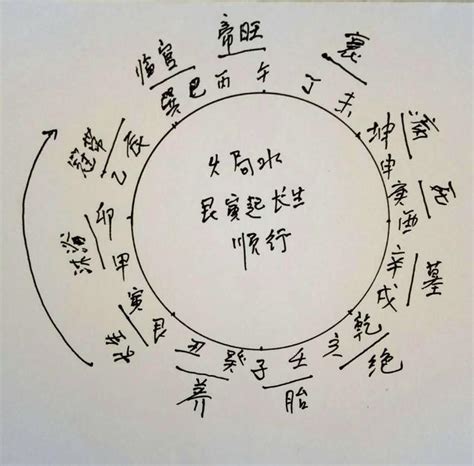 帝旺
丙午
衰
丁未
病
坤申
死
庚酉
墓
辛戌
绝
乾亥
胎
壬子
养
癸丑
长生
艮寅
沐浴
甲卯
冠带
乙辰
临官
巽巳
火局水
艮寅起长生
顺行